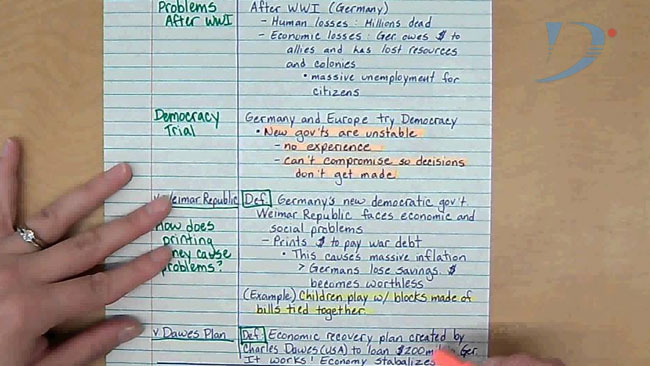 Problems
After WWI
After WWI (Germany)
- Human losses : Millions dead
- Economic losses : Ger owes $ to
allies and has lost resources
and colonies
• massive unemployment for
citizens
Democracy
Trial
Germany and Europe try Democracy
• New gov'ts are unstable
- no experience
- can't compromise so decisions
don't get made
Weimar Republic
Def. Germany's new democratic gov't
Weimar Republic faces economic and
social problems
How does
printing
cause
problems?
- Prints $ to pay war debt
• This causes massive inflation
> Germans lose savings. $
becomes worthless
(Example) Children play w/ blocks made of
bills tied together
v Dawes Plan
Def. Economic recovery plan created by
Charles Dawes (USA) to loan $200 Ger.
It works! Economy stabalizes